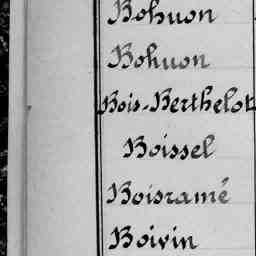 Bohuon
Bohuon
Bois-Berthelot
Boissel
Boisramé
Boivin